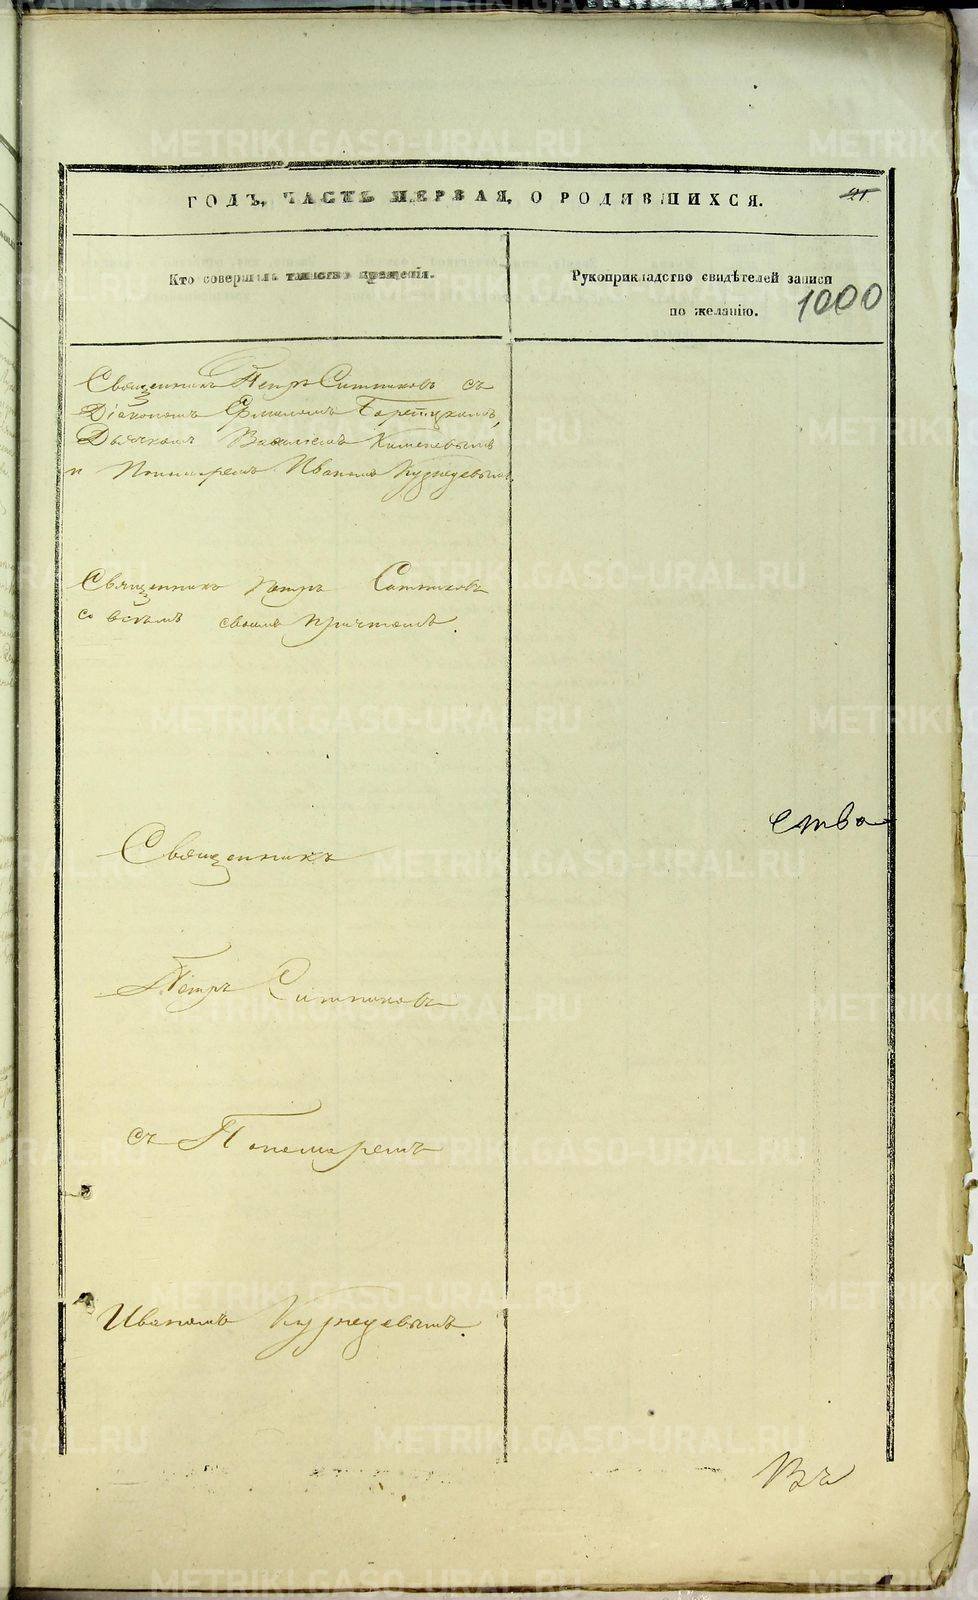 ГОДЪ, ЧАСТЬ ПЕРВАЯ, О РОДИВШИХСЯ. 21
Кто совершалъ таинство крещенія.
Рукоприкладство свидѣтелей записи
по желанію.
1000
Священникъ Петръ Ситниковъ съ
Діакономъ
Дьячкомъ
и Пономаремъ Иваномъ
Священникъ Петръ Ситниковъ
со всѣмъ своимъ причтомъ.
ства
Священникъ
Петръ Ситниковъ
съ Пономаремъ
Иваномъ
Въ
METRIKI.GASO-URAL.RU